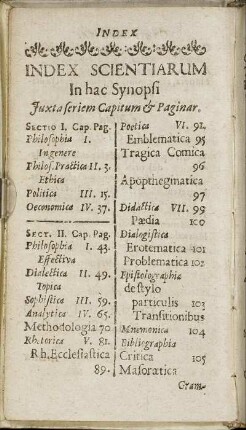 INDEX
INDEX SCIENTIARUM
In hac Synopsi
Juxta seriem Capitum & Paginar.
SECTIO I. Cap. Pag.
Philosophia I.
In genere
Philos. Practica II. 3.
Ethica
Politica III. 15.
Oeconomica IV. 37.
SECT. II. Cap. Pag.
Philosophia I. 43.
Effectiva
Dialectica II. 49.
Topica
Sophistica III. 59.
Analytica IV. 65.
Methodologia 70
Rhetorica V. 81.
Rh. Ecclesiastica
89.
Poetica VI. 91.
Emblematica 95
Tragica Comica
96
Apopthegmatica
97
Didactica VII. 99
Pædia 100
Dialogistica
Erotematica 101
Problematica 102
Epistolographia
de stylo
particulis 103
Transitionibus
Mnemonica 104
Bibliographia
Critica 105
Masoratica
Gram-